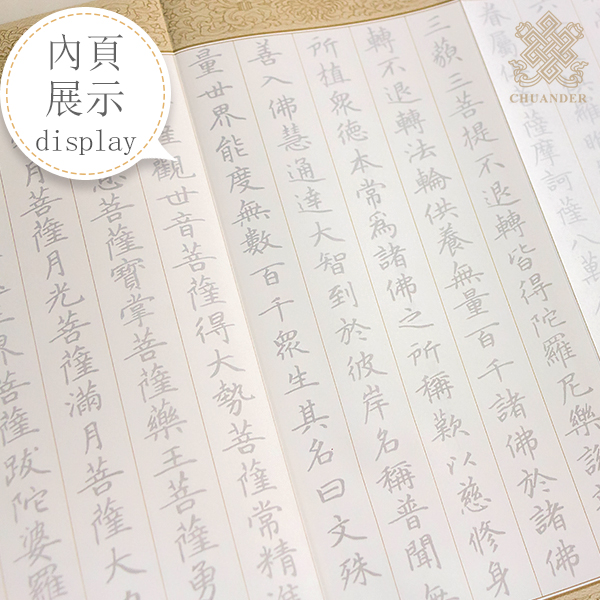 內頁
展示
display
CHUANDER
眷屬
薩摩訶薩八萬
三藐三菩提不退轉皆得陀羅尼樂說
轉不退轉法輪供養無量百千諸佛於諸佛
所植衆德本常為諸佛之所稱歎以慈修身
善入佛慧通達大智到於彼岸名稱普聞無
量世界能度無數百千衆生其名曰文殊
觀世音菩薩得大勢菩薩常精進
息菩薩寶掌菩薩藥王菩薩勇
月菩薩月光菩薩滿月菩薩大
界菩薩跋陀婆羅